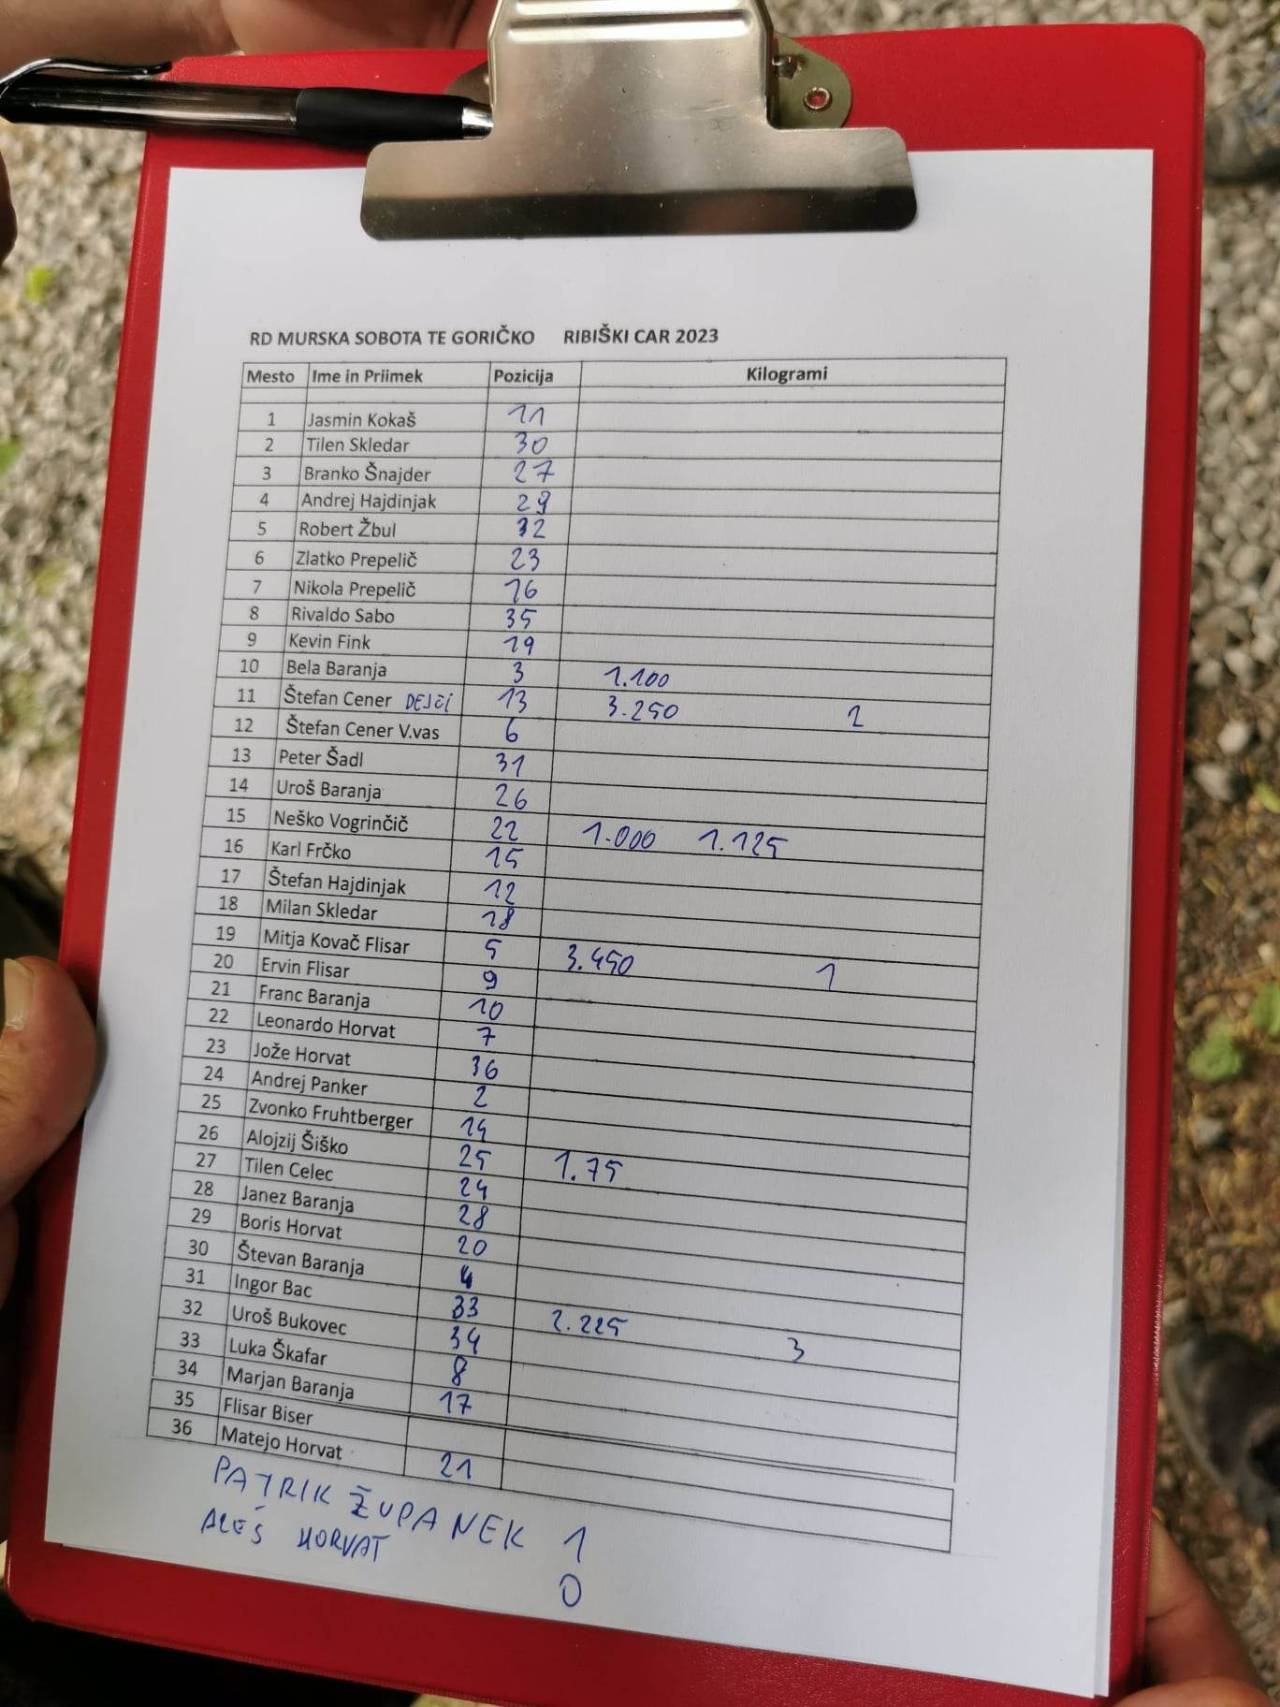 RD MURSKA SOBOTA TE GORIČKO RIBIŠKI CAR 2023
Mesto Ime in Priimek Pozicija Kilogrami
1 Jasmin Kokaš 11
2 Tilen Skledar 30
3 Branko Šnajder 27
4 Andrej Hajdinjak 29
5 Robert Žbul 32
6 Zlatko Prepelič 23
7 Nikola Prepelič 16
8 Rivaldo Sabo 35
9 Kevin Fink 19
10 Bela Baranja 3 1.100
11 Štefan Cener DEJČI 13 3.250 2
12 Štefan Cener V.vas 6
13 Peter Šadl 31
14 Uroš Baranja 26
15 Neško Vogrinčič 22 1.000 1.125
16 Karl Frčko 15
17 Štefan Hajdinjak 12
18 Milan Skledar 18
19 Mitja Kovač Flisar 5 3.450 1
20 Ervin Flisar 9
21 Franc Baranja 10
22 Leonardo Horvat 7
23 Jože Horvat 36
24 Andrej Panker 2
25 Zvonko Fruhtberger 14
26 Alojzij Šiško 25 1.75
27 Tilen Celec 24
28 Janez Baranja 28
29 Boris Horvat 20
30 Števan Baranja 4
31 Ingor Bac 33 2.225
32 Uroš Bukovec 34 3
33 Luka Škafar 8
34 Marjan Baranja 17
35 Flisar Biser
36 Matejo Horvat 21
PATRIK ŽUPANEK 1
ALEŠ HORVAT 0